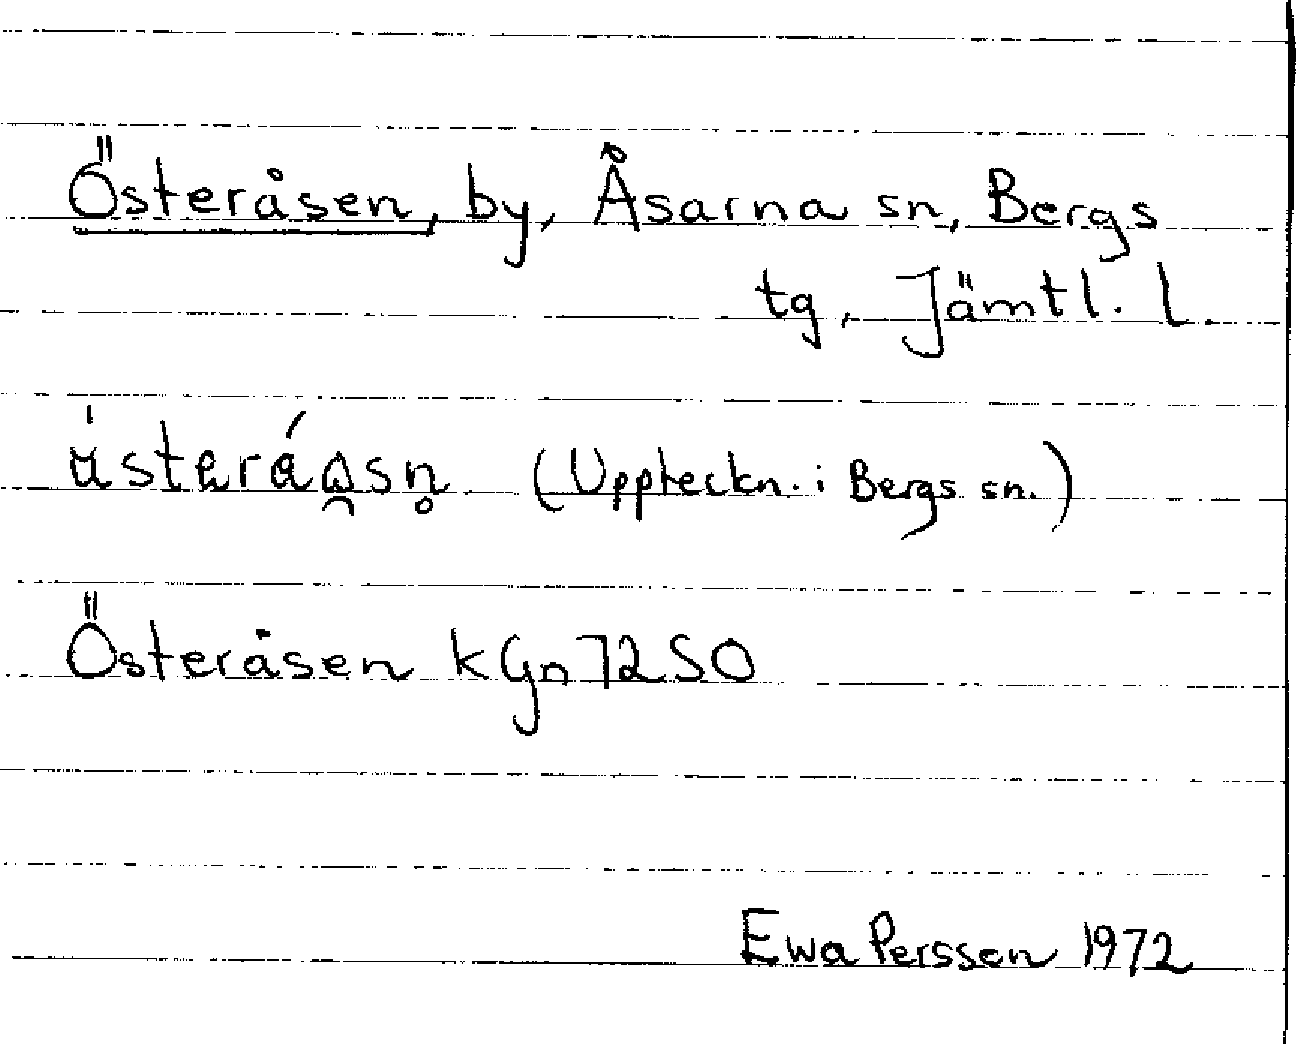 Österåsen, by, Åsarna sn, Bergs
tg, Jämtl. l.
(Uppteckn. i Bergs sn.)
Österåsen kGn 72 SO
Ewa Persson 1972